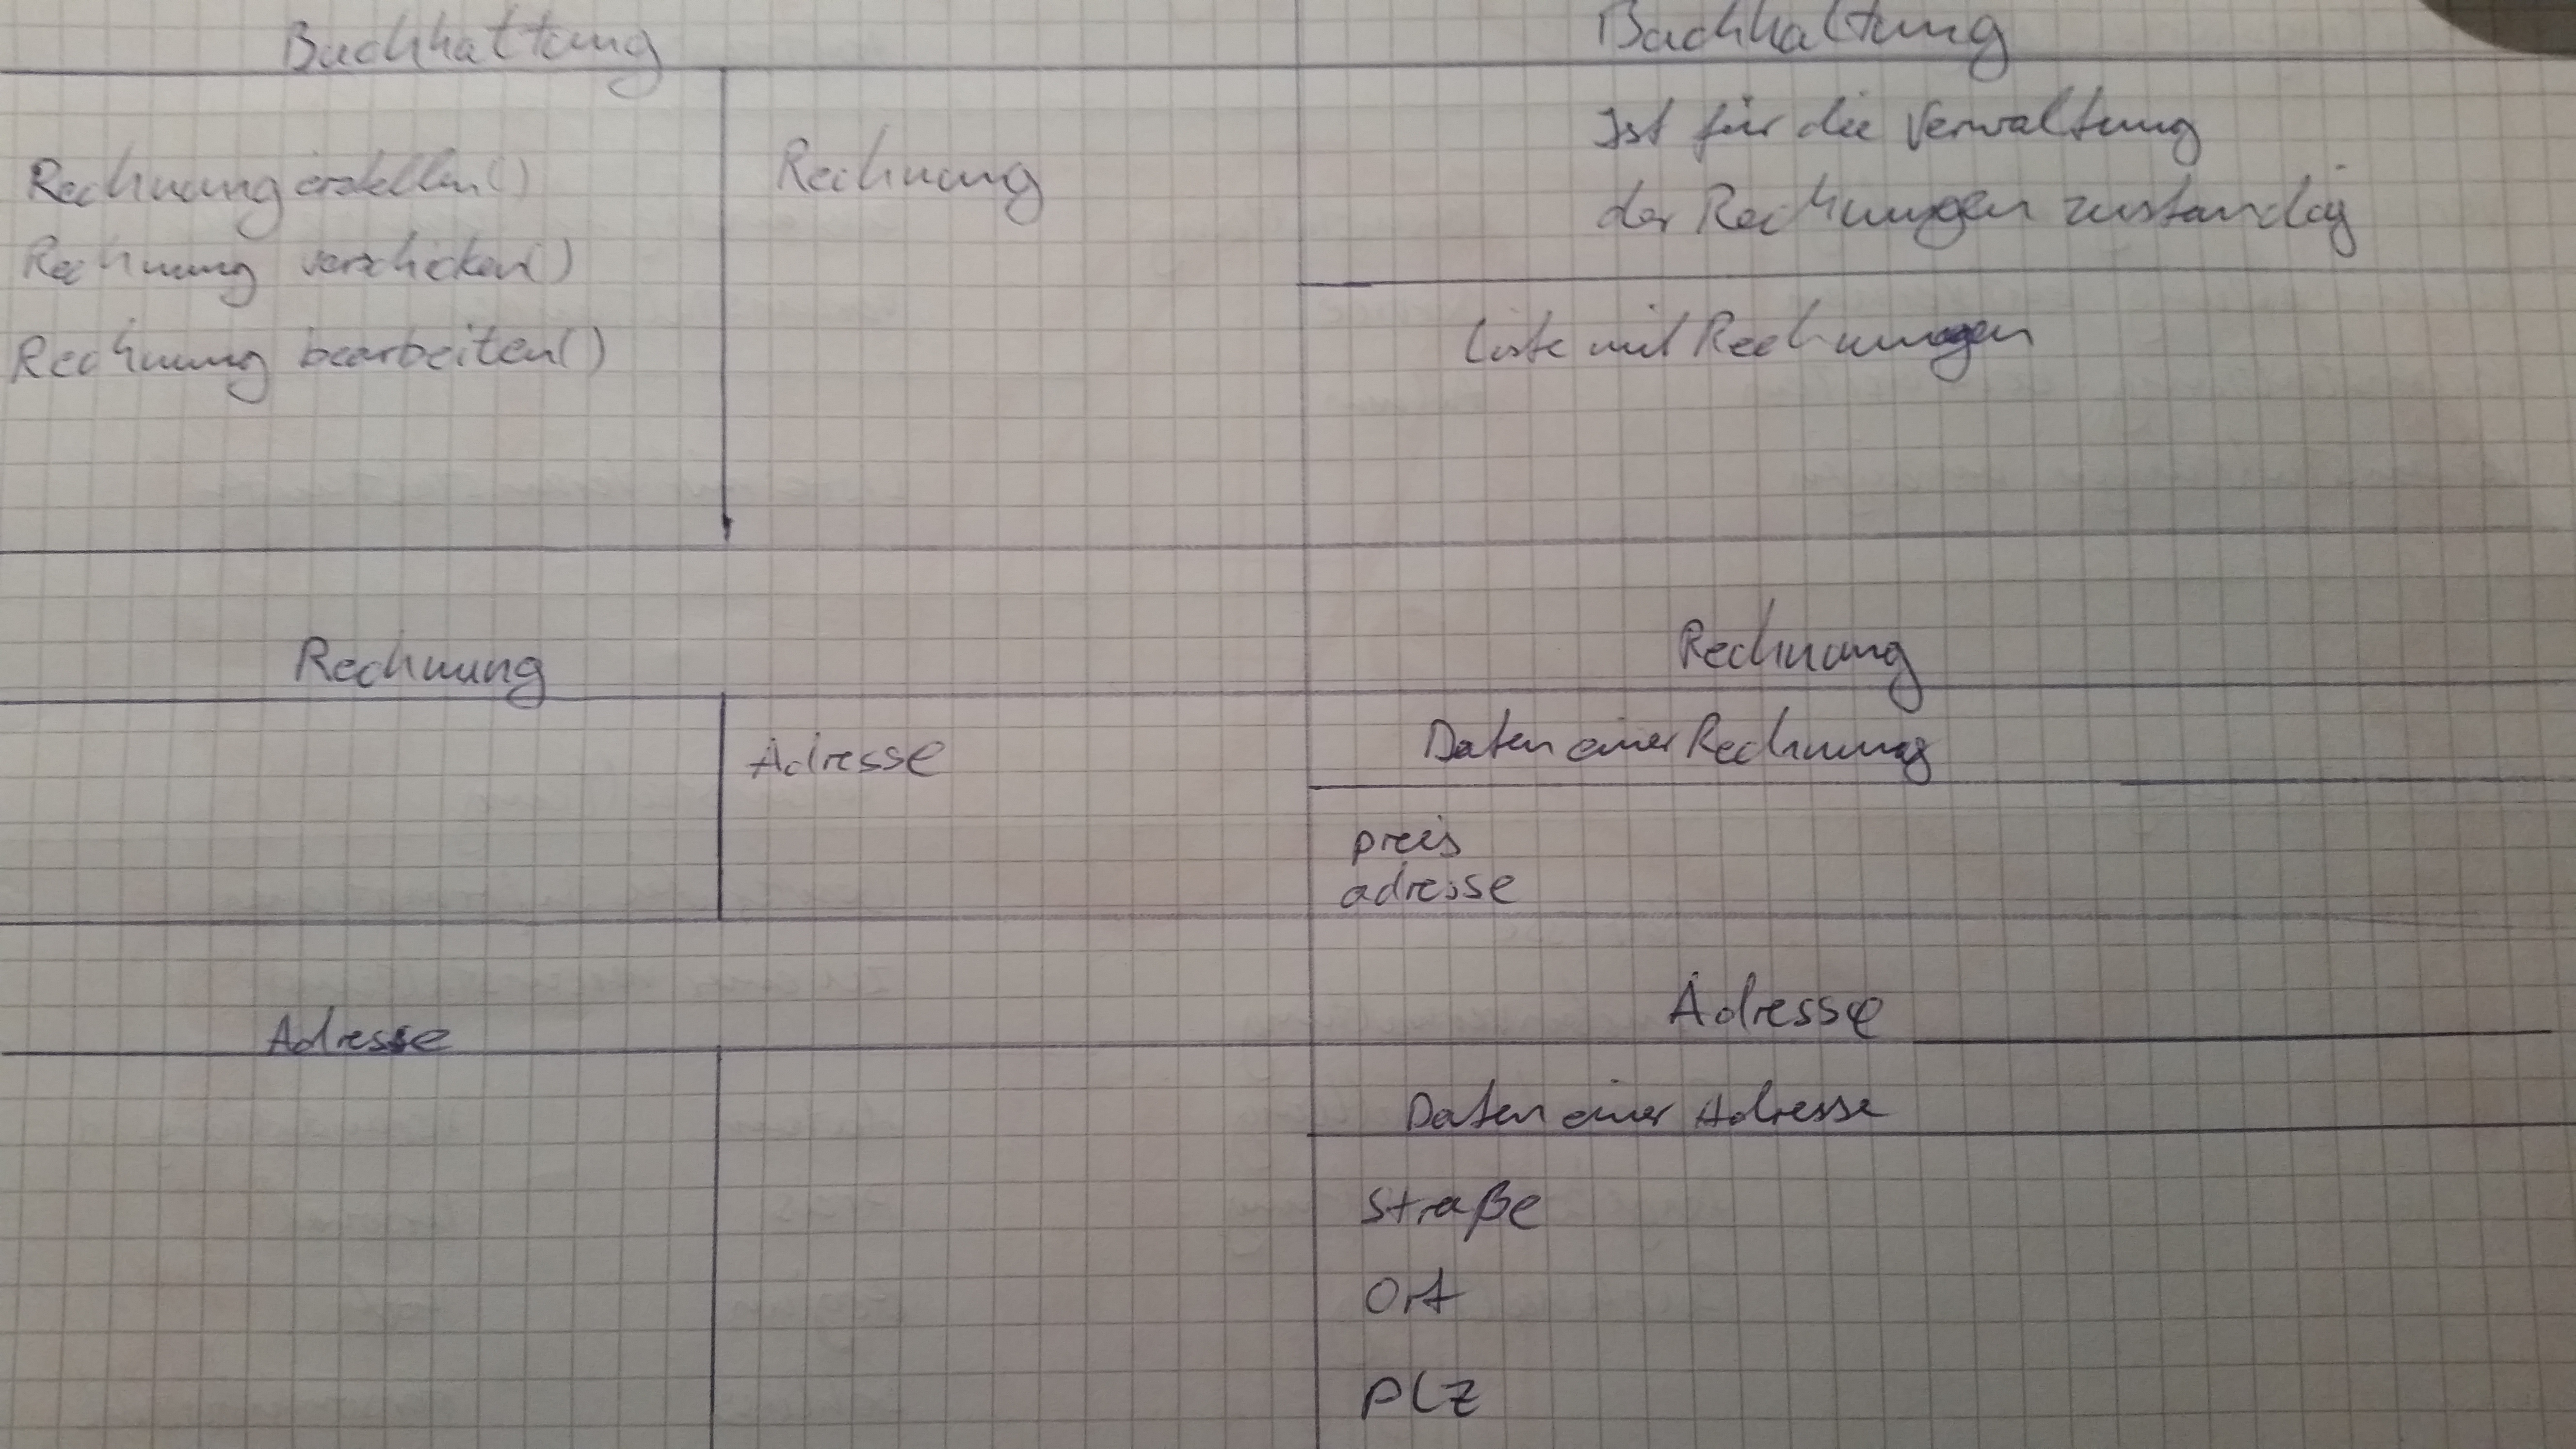 Buchhaltung
Rechnung erstellen()
Rechnung verschicken()
Rechnung bearbeiten()
Rechnung
Buchhaltung
Ist für die Verwaltung
der Rechnungen zuständig
Liste mit Rechnungen
Rechnung
Adresse
Rechnung
Daten einer Rechnung
preis
adresse
Adresse
Adresse
Daten einer Adresse
Straße
Ort
PLZ